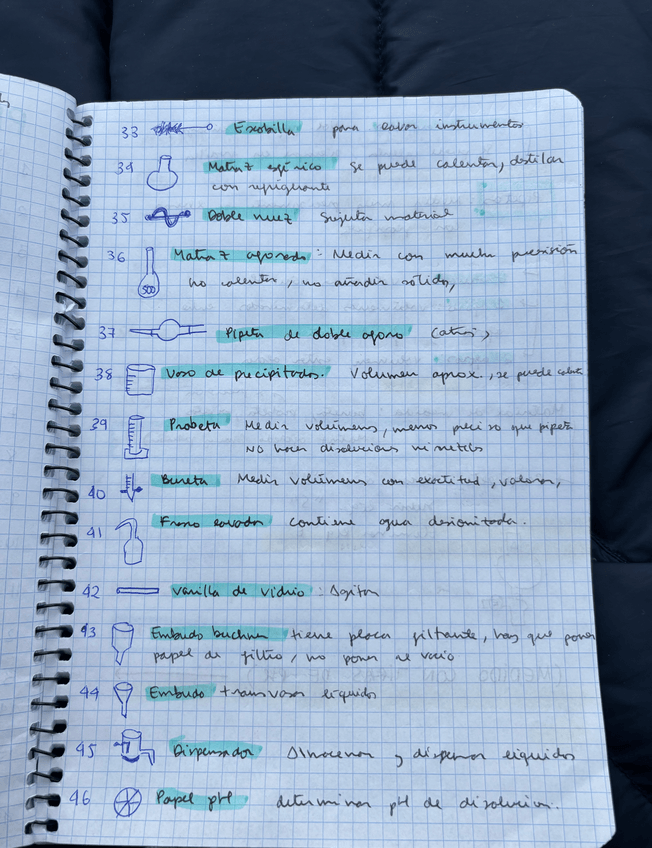 33 Escobilla para lavar instrumentos
34 Matraz esférico se puede calentar, destilar
con refrigerante
35 Doble nuez Sujeta material
36 Matraz aforado: Medir con mucha precisión
500 no calentar, no añadir sólido,
37 Pipeta de doble aforo
38 Vaso de precipitados. Volumen aprox., se puede calentar
39 Probeta Medir volúmenes, menos preciso que pipeta
NO hacer disoluciones ni
40 Bureta Medir volúmenes con exactitud, valorar,
41 Frasco lavador contiene agua desionitada.
42 Varilla de vidrio: Agitar
43 Embudo buchner tiene placa filtrante, hay que poner
papel de filtro, no poner al vacío
44 Embudo transvasar líquidos
45 Dispensador Almacenar y dispensar líquidos
46 Papel pH determinar pH de disolución.